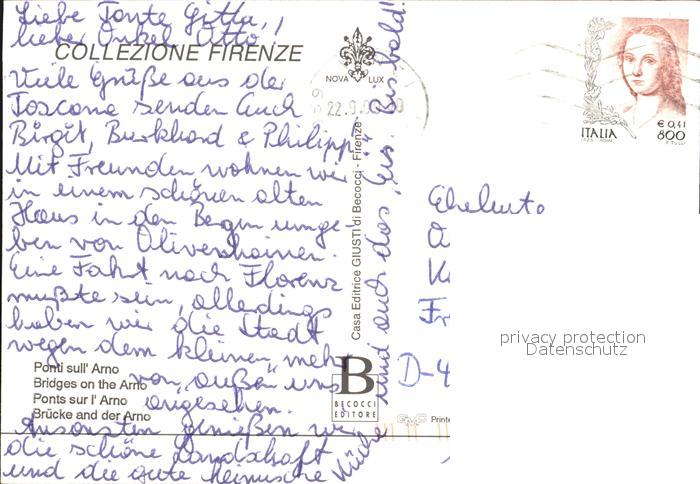 Liebe Tante Gitta,
lieber Onkel Otto,
COLLEZIONE FIRENZE
Viele Grüße aus der
Toscana senden Euch
Birgit, Burkhard & Philipp.
Mit Freunden wohnen wir
in einem schönen alten
Haus in den Bergen umge-
ben von Olivenhainen.
Eine Fahrt nach Florenz
mußte sein, allerdings
haben wir die Stadt
wegen dem kleinen, mehr
von „außen“ uns
angesehen.
Ansonsten genießen wir
die schöne Landschaft
und die gute heimische
Küche
und auch das „Eis“. Bis bald!
Ponti sull' Arno
Bridges on the Arno
Ponts sur l' Arno
Brücke and der Arno
NOVA LUX
22.9.
Casa Editrice GIUSTI di Becocci - Firenze
B
BECOCCI
EDITORE
ITALIA
€ 0,41
800
Eheleute
O
K
Fr
D-4
privacy protection
Datenschutz